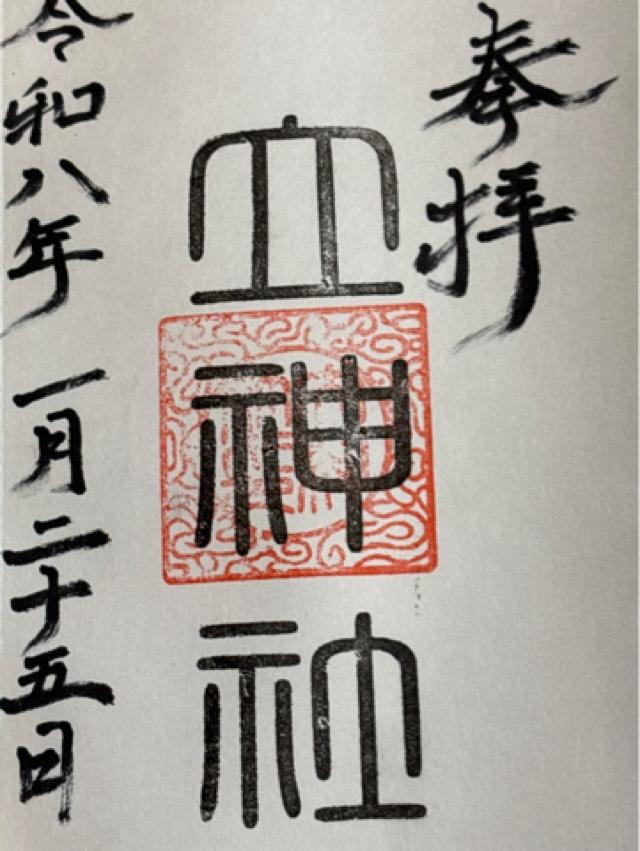 奉拝
立神社
令和八年一月二十五日